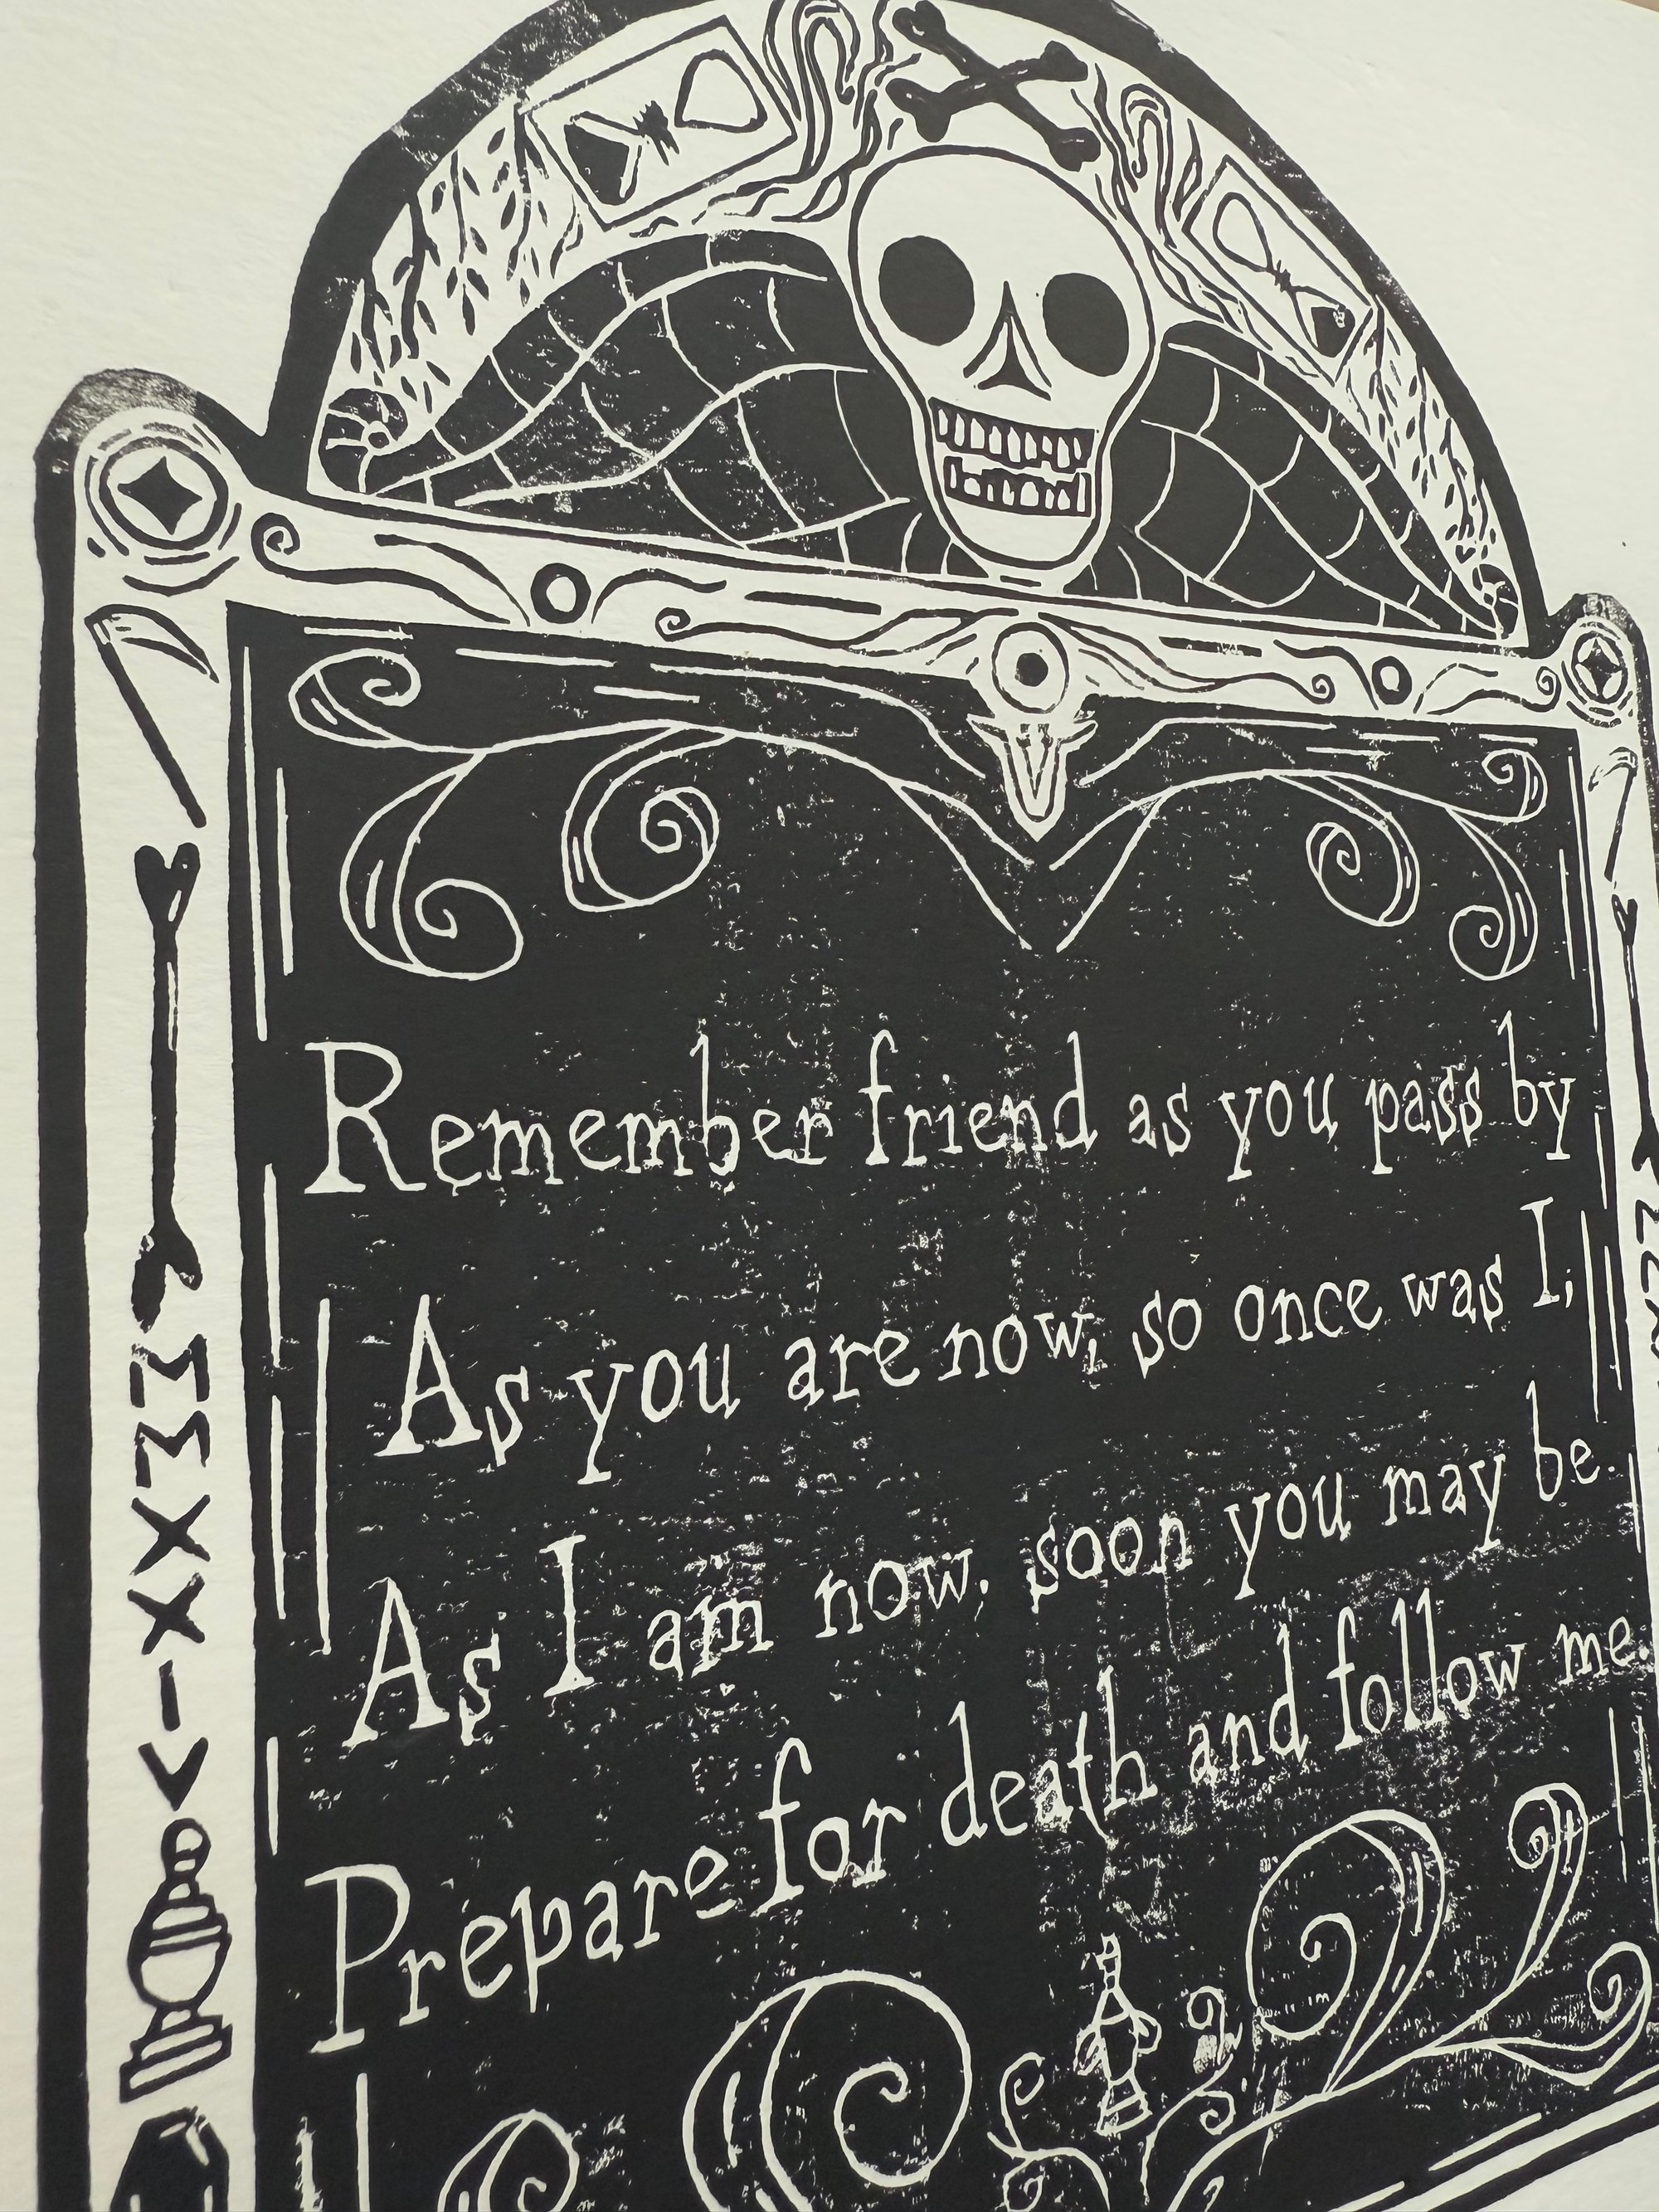 Remember friend as you pass by
As you are now, so once was I,
As I am now, soon you may be.
Prepare for death and follow me.
MMXXIV